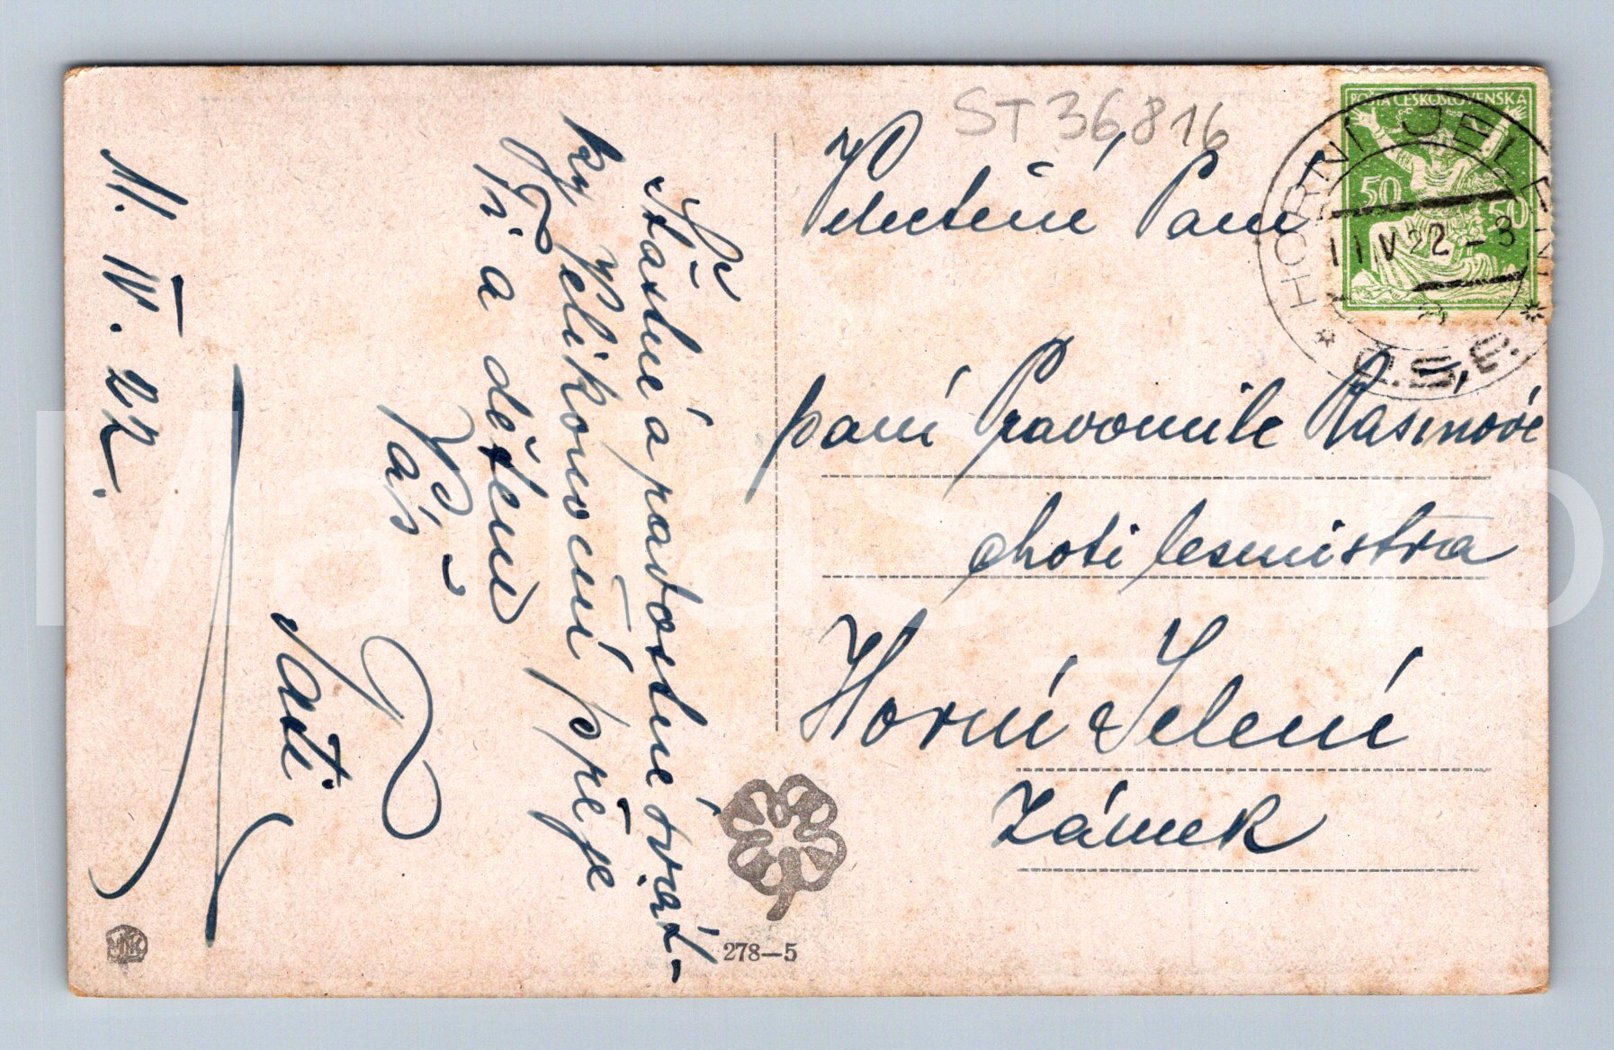 11. IV. 22.
Šťastné a radostné svát-
ky Velikonoční přeje
Ti a dětem
Váš
Taťi
ST 36816
Velectěná Paní
paní Pravomile Rašínové
choti lesmistra
Horní Jelení
Zámek
POŠTA ČESKOSLOVENSKÁ
50 50
HORNÍ JELENÍ
11 IV 22 - 8
Č.S.R.
278—5